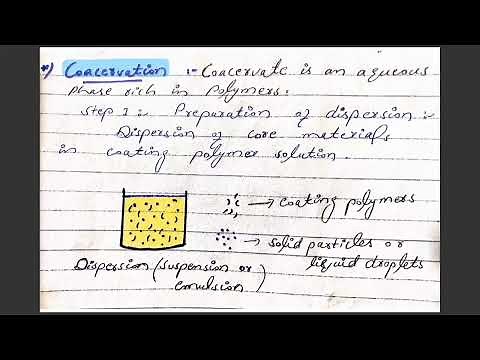 *) Coacervation :- Coacervate is an aqueous
phase rich in polymers.
Step 1 :- Preparation of dispersion :-
Dispersion of core materials
in coating polymer solution.
→ coating polymers
→ solid particles or
liquid droplets
Dispersion (suspension or
emulsion)